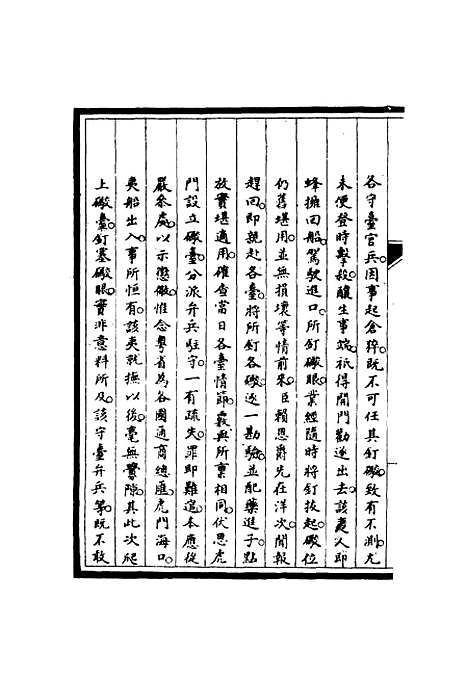 各守臺官兵因事起倉猝既不可任其釘礮致有不測尤
未便登時擊殺釀生事端祇得開門勸逐出去該夷人即
蜂擁回船駕駛進口所釘礮眼業經隨時將釘拔起礮位
仍舊堪用並無損壞等情前來臣賴恩爵先在洋次聞報
趕回即親赴各臺將所釘各礮逐一勘驗並配藥進子點
放實堪適用確查當日各臺情節覈與所稟相同伏思虎
門設立礮臺分派弁兵駐守一有疏失罪即難逭本應從
嚴叅處以示懲儆惟念粵省為各國通商總匯虎門海口
夷船出入事所恒有該夷就撫以後毫無釁隙其此次爬
上礮臺釘塞礮眼實非意料所及該守臺弁兵等既不敢